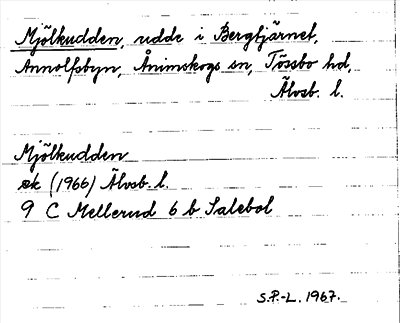 Mjölkudden, udde i Bergtjärnet,
Annolfsbyn, Ånimskogs sn, Tössbo hd,
Älvsb. l.
Mjölkudden
ek (1966) Älvsb. l.
9 C Mellerud 6 b Salebol
S.P.-L. 1967.